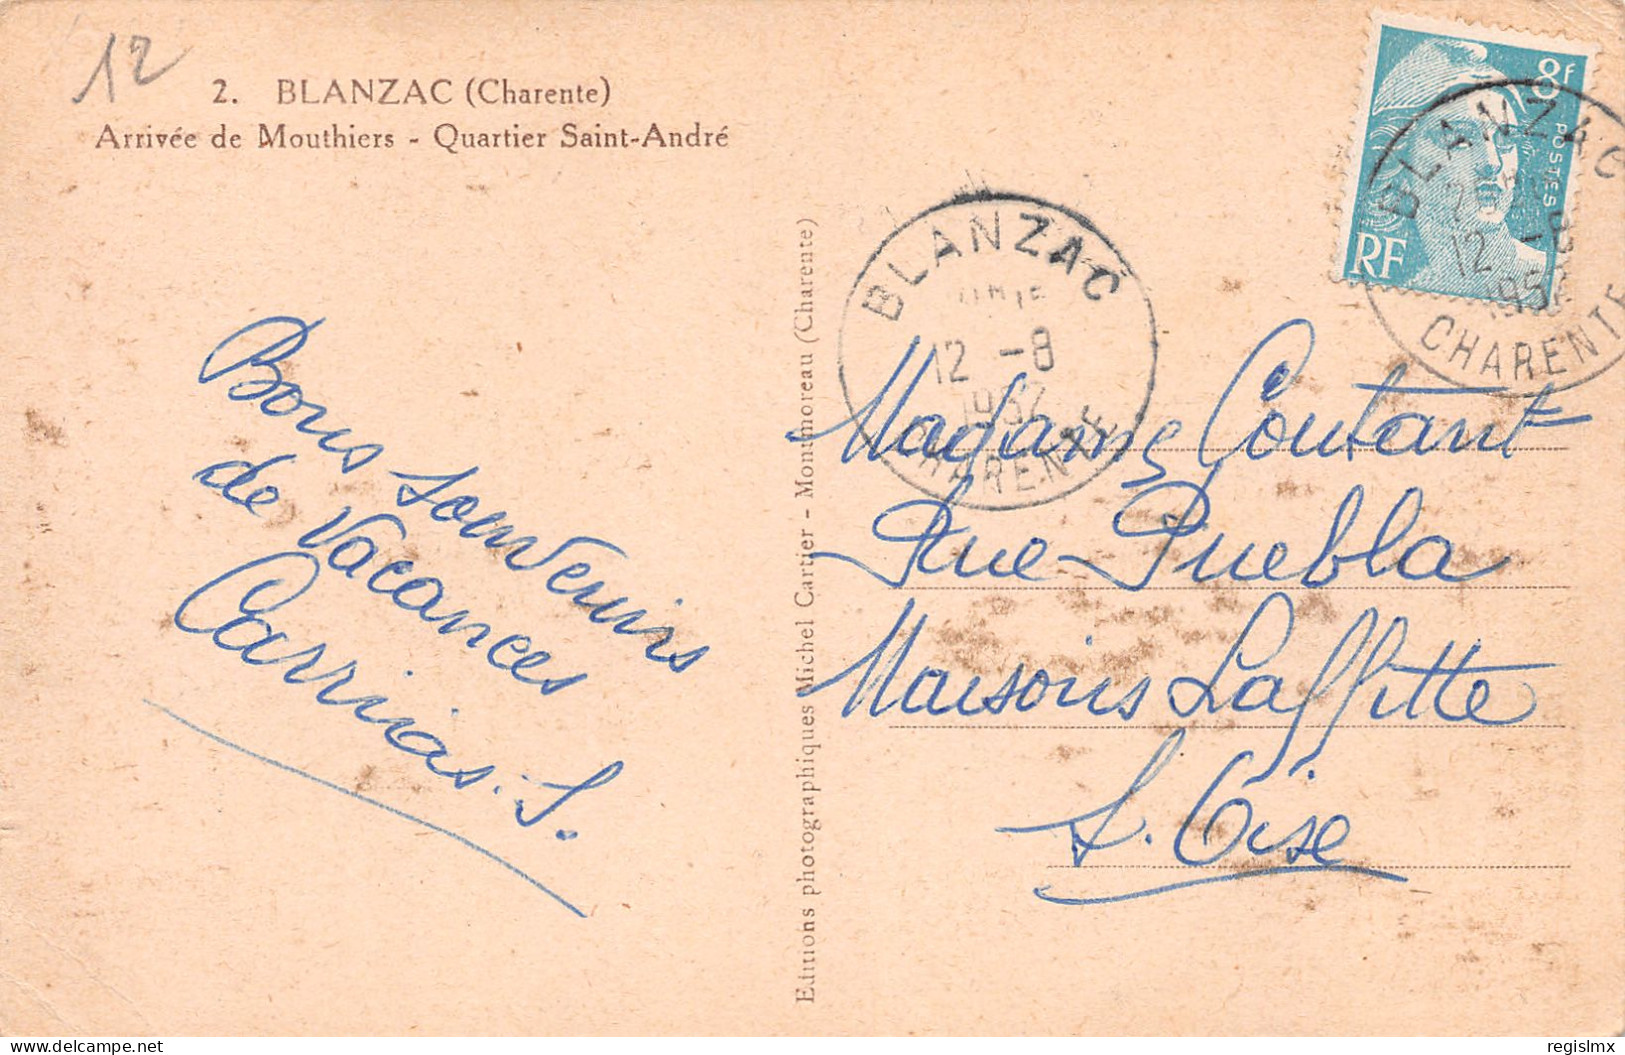 12
2. BLANZAC (Charente)
Arrivée de Mouthiers - Quartier Saint-André
Bons souvenirs
de Vacances
Carrias. S.
Editions photographiques Michel Cartier - Montmoreau (Charente)
BLANZAC
12 -8
CHARENTE
8F
POSTES
RF
BLANZAC
12 -8
CHARENTE
Madame Coutant
Rue Puebla
Maisons Laffitte
S. Oise
www.delcampe.net
regislmx